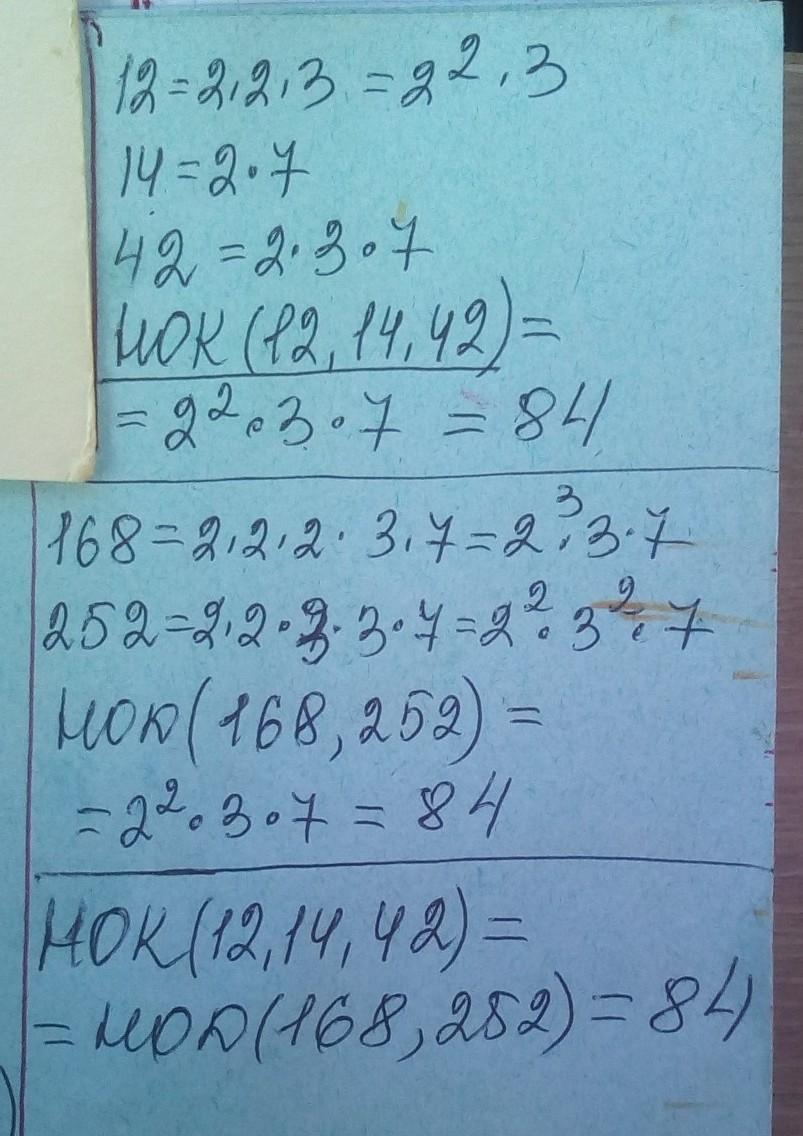 12=2·2·3=2²·3
14=2·7
42=2·3·7
НОК(12,14,42)=
=2²·3·7=84
168=2·2·2·3·7=2³·3·7
252=2·2·3·3·7=2²·3²·7
НОД(168,252)=
=2²·3·7=84
НОК(12,14,42)=
=НОД(168,252)=84